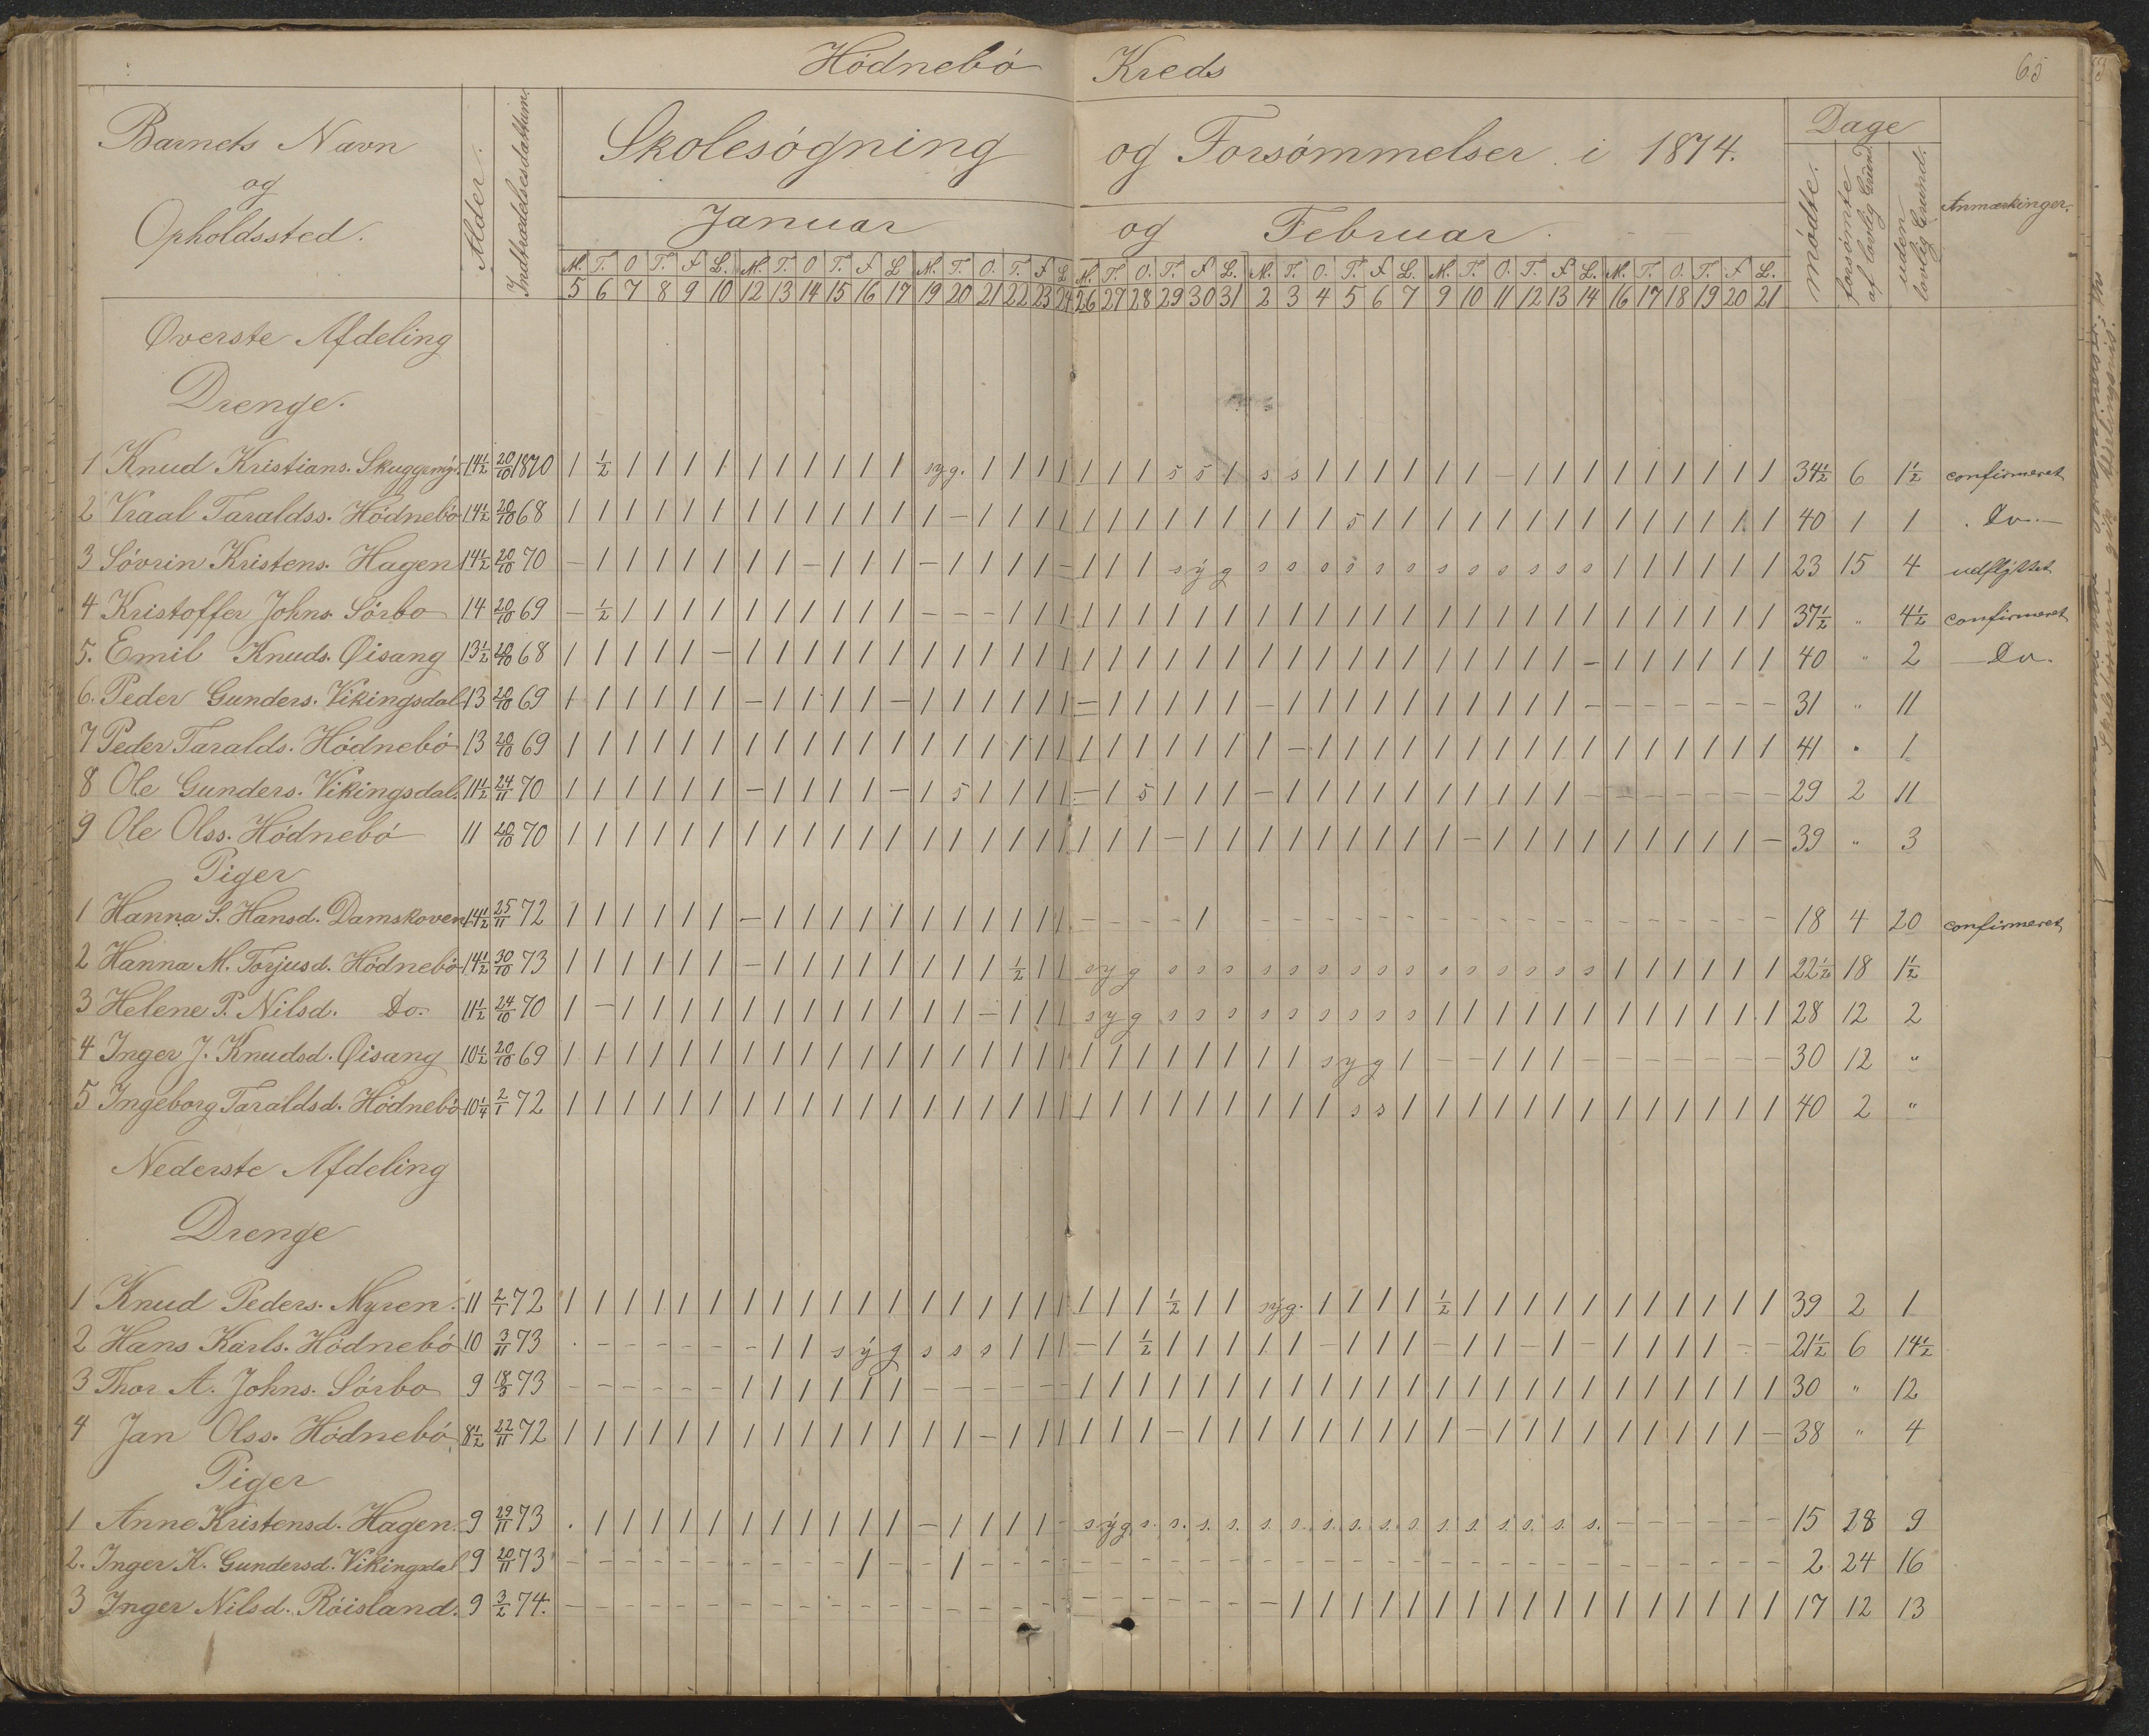 Hódnebó Kreds 65
Barnets Navn og Opholdssted. Alder. Indtrædelsesdattum. Skolesógning og Forsómmelser i 1874. Dage Anmærkinger.
Januar og Februar. módte. forsómte af lovlig Grund. uden lovlig Grund.
M. T. O T. F L. M. T. O T. F L M. T. O. T. F L M. T. O. T. F L. M. T. O. T. F L. M. T. O. T. F L. M. T. O. T. F L.
5 6 7 8 9 10 12 13 14 15 16 17 19 20 21 22 23 24 26 27 28 29 30 31 2 3 4 5 6 7 9 10 11 12 13 14 16 17 18 19 20 21
Øverste Afdeling
Drenge.
1 Knud Kristians. Skuggemyr. 14½ 20/10 1870 34½ 6 1½ confirmeret
2 Vraal Taraldss. Hódnebó 14½ 20/10 68 40 1 1 Do.
3 Sóvrin Kristens. Hagen 14½ 20/10 70 23 15 4 udflyttet
4 Kristoffer Johns. Sórbo 14 20/10 69 37½ " 4½ confirmeret
5. Emil Knuds. Øisang 13½ 20/10 68 40 " 2 Do.
6. Peder Gunders. Vikingsdal 13 20/10 69 31 " 11
7 Peder Taralds. Hódnebó 13 20/10 69 41 " 1
8 Ole Gunders. Vikingsdal. 11½ 24/11 70 29 2 11
9 Ole Olss. Hódnebó 11 20/10 70 39 " 3
Piger
1 Hanna S. Hansd. Damskoven 14½ 25/11 72 18 4 20 confirmeret
2 Hanna M. Torjusd. Hódnebó 14½ 30/10 73 22½ 18 1½
3 Helene P. Nilsd. Do. 11½ 24/10 70 28 12 2
4 Inger J. Knudsd. Øisang 10½ 20/10 69 30 12 "
5 Ingeborg Taraldsd. Hódnebó 10¼ 2/1 72 40 2 "
Nederste Afdeling
Drenge
1 Knud Peders. Myren. 11 2/1 72 39 2 1
2 Hans Karls. Hódnebó 10 3/11 73 21½ 6 14½
3 Thor A. Johns. Sórbo 9 18/3 73 30 " 12
4 Jan Olss. Hódnebó 8½ 22/11 72 38 " 4
Piger
1 Anne Kristensd. Hagen. 9 29/11 73 15 28 9
2. Inger K. Gundersd. Vikingsdal 9 20/11 73 2 24 16
3 Inger Nilsd. Róisland. 9 3/2 74. 17 12 13